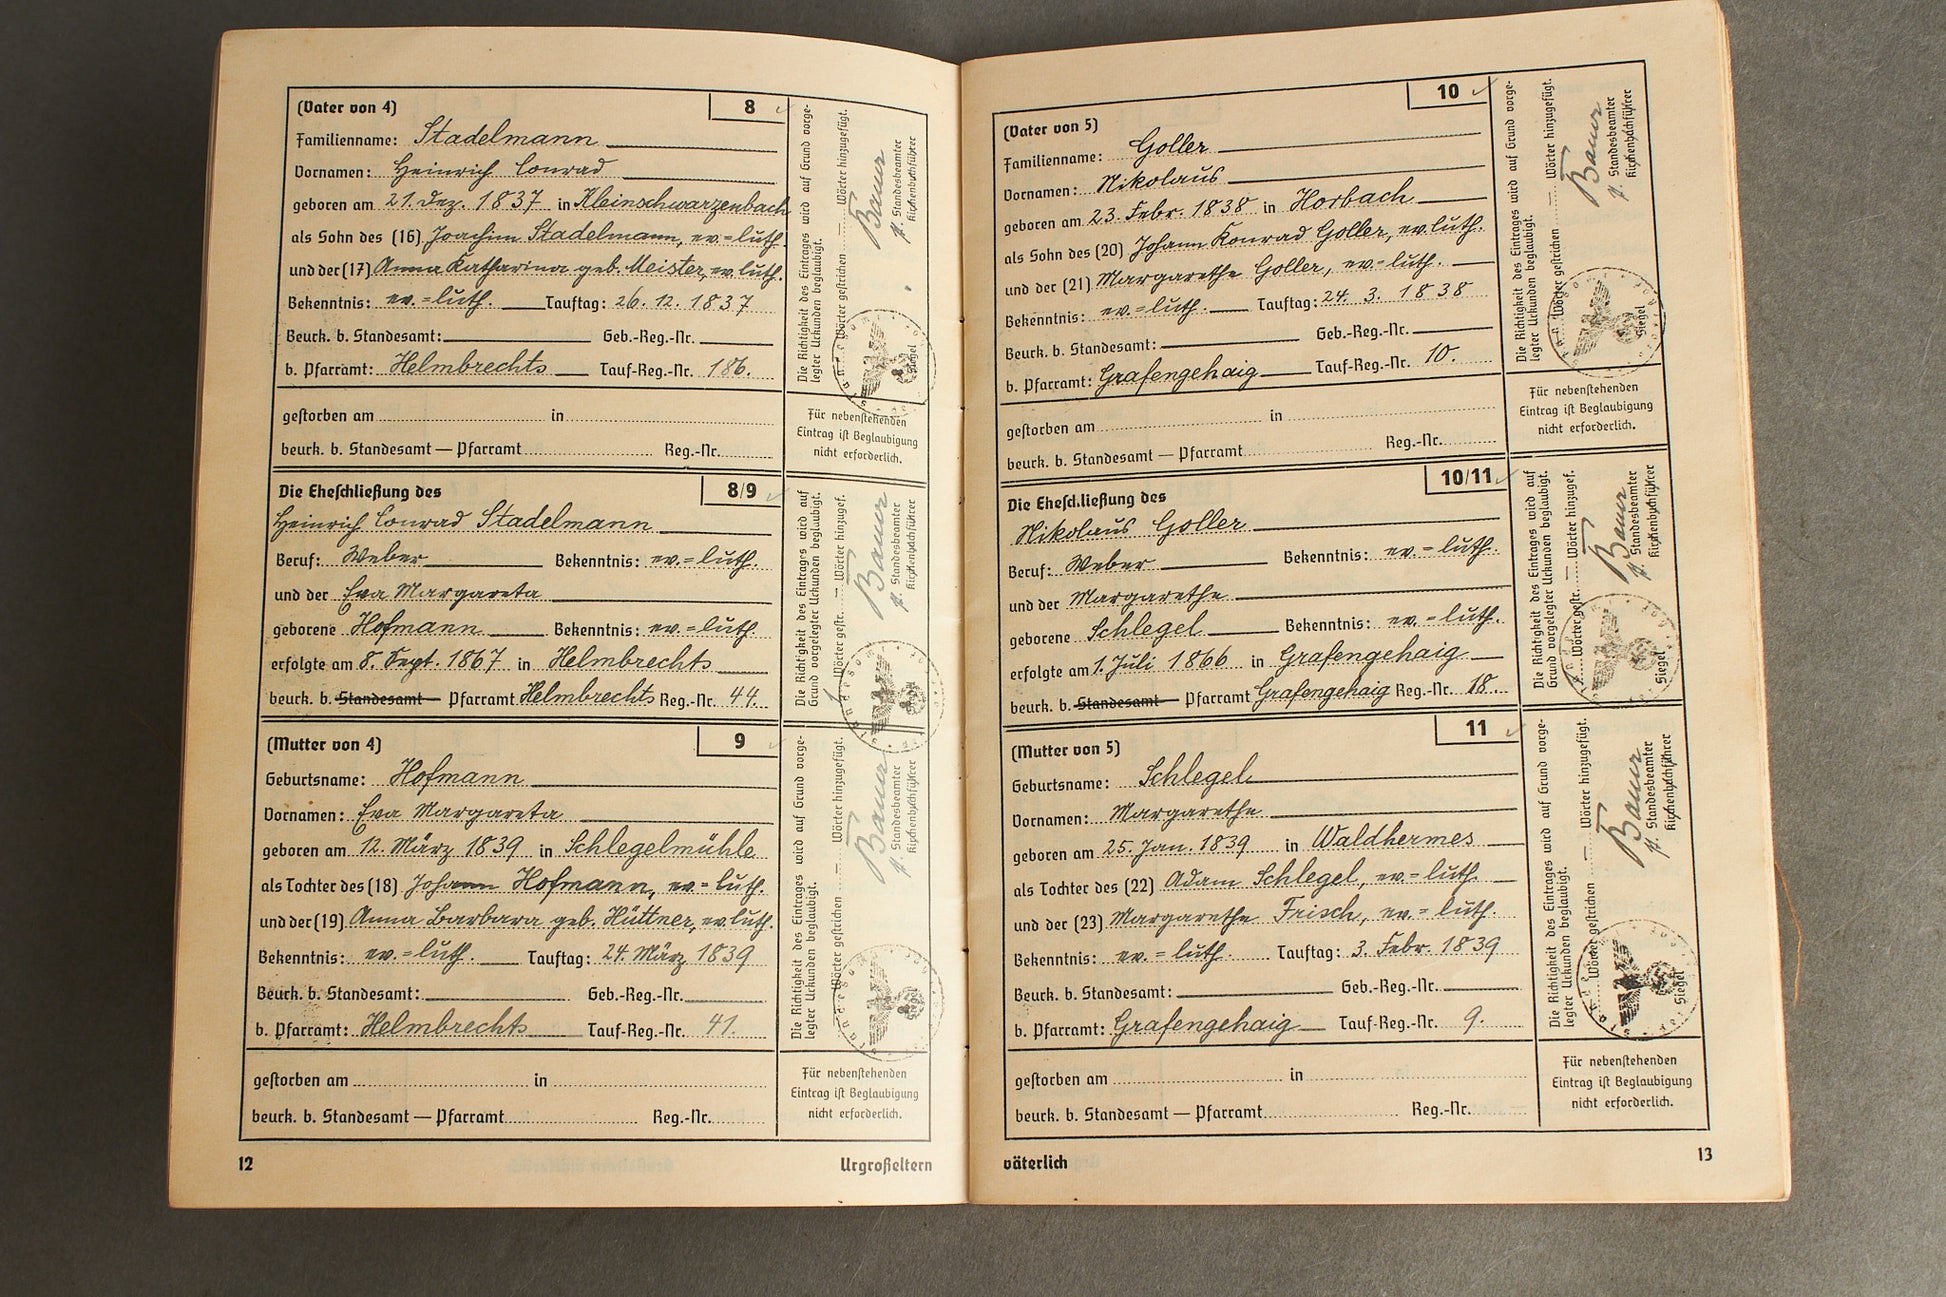 (Vater von 4) 8
Familienname: Stadelmann
Vornamen: Heinrich Conrad
geboren am 21. Dez. 1837 in Kleinschwarzenbach
als Sohn des (16) Joachim Stadelmann, ev.=luth.
und der (17) Anna Katharina geb. Meister, ev.luth.
Bekenntnis: ev.=luth. Tauftag: 26. 12. 1837
Beurk. b. Standesamt: Geb.-Reg.-Nr.
b. Pfarramt: Helmbrechts Tauf-Reg.-Nr. 186.
gestorben am in
beurk. b. Standesamt — Pfarramt Reg.-Nr.
Die Richtigkeit des Eintrages wird auf Grund vorge-
legter Urkunden beglaubigt.
Wörter gestrichen — Wörter hinzugefügt.
Bauer
Standesbeamter
Kirchenbuchführer
Siegel
Für nebenstehenden
Eintrag ist Beglaubigung
nicht erforderlich.
Die Eheschließung des 8/9
Heinrich Conrad Stadelmann
Beruf: Weber Bekenntnis: ev.=luth.
und der Eva Margareta
geborene Hofmann Bekenntnis: ev.=luth.
erfolgte am 8. Sept. 1867 in Helmbrechts
beurk. b. Standesamt — Pfarramt Helmbrechts Reg.-Nr. 44.
Die Richtigkeit des Eintrages wird auf
Grund vorgelegter Urkunden beglaubigt.
Wörter gestr. — Wörter hinzugef.
Bauer
Standesbeamter
Kirchenbuchführer
(Mutter von 4) 9
Geburtsname: Hofmann
Vornamen: Eva Margareta
geboren am 12. März 1839 in Schlegelmühle
als Tochter des (18) Johann Hofmann, ev.=luth.
und der (19) Anna Barbara geb. Hüttner, ev.luth.
Bekenntnis: ev.=luth. Tauftag: 24. März 1839
Beurk. b. Standesamt: Geb.-Reg.-Nr.
b. Pfarramt: Helmbrechts Tauf-Reg.-Nr. 41.
gestorben am in
beurk. b. Standesamt — Pfarramt Reg.-Nr.
Die Richtigkeit des Eintrages wird auf Grund vorge-
legter Urkunden beglaubigt.
Wörter gestrichen — Wörter hinzugefügt.
Bauer
Standesbeamter
Kirchenbuchführer
Für nebenstehenden
Eintrag ist Beglaubigung
nicht erforderlich.
12 Urgroßeltern
(Vater von 5) 10
Familienname: Goller
Vornamen: Nikolaus
geboren am 23. Febr. 1838 in Horbach
als Sohn des (20) Johann Konrad Goller, ev.luth.
und der (21) Margarethe Goller, ev.=luth.
Bekenntnis: ev.=luth. Tauftag: 24. 3. 1838
Beurk. b. Standesamt: Geb.-Reg.-Nr.
b. Pfarramt: Grafengehaig Tauf-Reg.-Nr. 10.
gestorben am in
beurk. b. Standesamt — Pfarramt Reg.-Nr.
Die Richtigkeit des Eintrages wird auf Grund vorge-
legter Urkunden beglaubigt.
Wörter gestrichen — Wörter hinzugefügt.
Bauer
Standesbeamter
Kirchenbuchführer
Siegel
Für nebenstehenden
Eintrag ist Beglaubigung
nicht erforderlich.
Die Eheschließung des 10/11
Nikolaus Goller
Beruf: Weber Bekenntnis: ev.=luth.
und der Margarethe
geborene Schlegel Bekenntnis: ev.=luth.
erfolgte am 1. Juli 1866 in Grafengehaig
beurk. b. Standesamt — Pfarramt Grafengehaig Reg.-Nr. 18.
Die Richtigkeit des Eintrages wird auf
Grund vorgelegter Urkunden beglaubigt.
Wörter gestr. — Wörter hinzugef.
Bauer
Standesbeamter
Kirchenbuchführer
Siegel
(Mutter von 5) 11
Geburtsname: Schlegel
Vornamen: Margarethe
geboren am 25. Jan. 1839 in Waldhermes
als Tochter des (22) Adam Schlegel, ev.=luth.
und der (23) Margarethe Frisch, ev.=luth.
Bekenntnis: ev.=luth. Tauftag: 3. Febr. 1839
Beurk. b. Standesamt: Geb.-Reg.-Nr.
b. Pfarramt: Grafengehaig Tauf-Reg.-Nr. 9.
gestorben am in
beurk. b. Standesamt — Pfarramt Reg.-Nr.
Die Richtigkeit des Eintrages wird auf Grund vorge-
legter Urkunden beglaubigt.
Wörter gestrichen — Wörter hinzugefügt.
Bauer
Standesbeamter
Kirchenbuchführer
Siegel
Für nebenstehenden
Eintrag ist Beglaubigung
nicht erforderlich.
väterlich 13